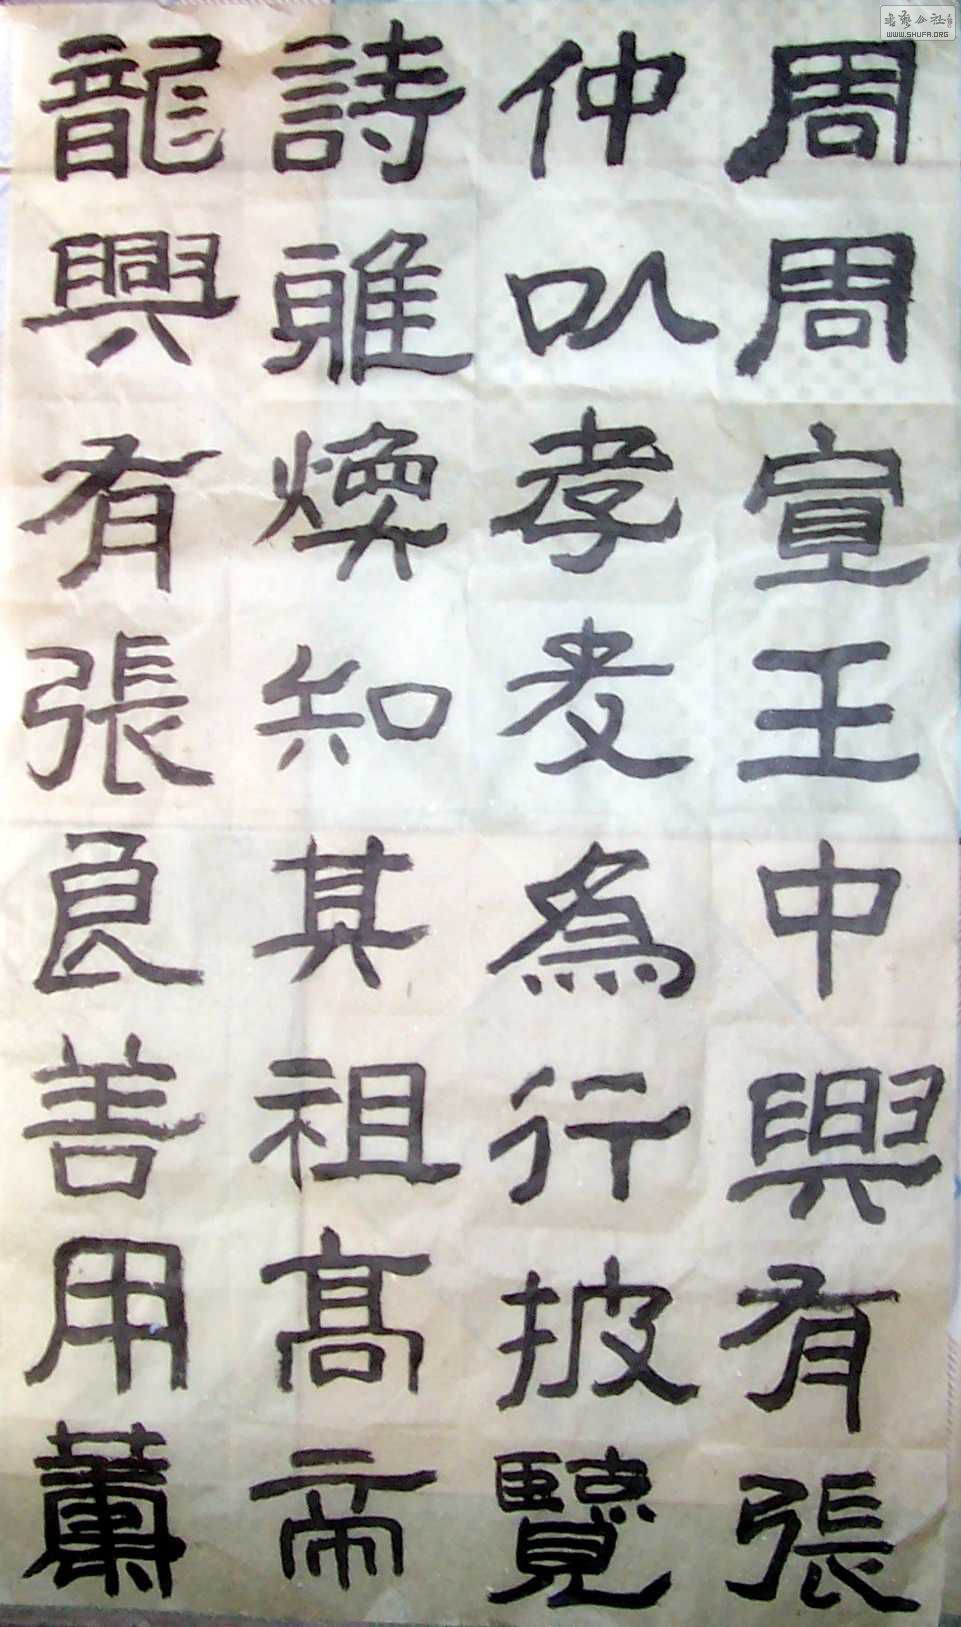 周周宣王中興有張
仲以孝孝為行披覽
詩雅煥知其祖高帝
龍興有張良善用蕭
WWW.SHUFA.ORG